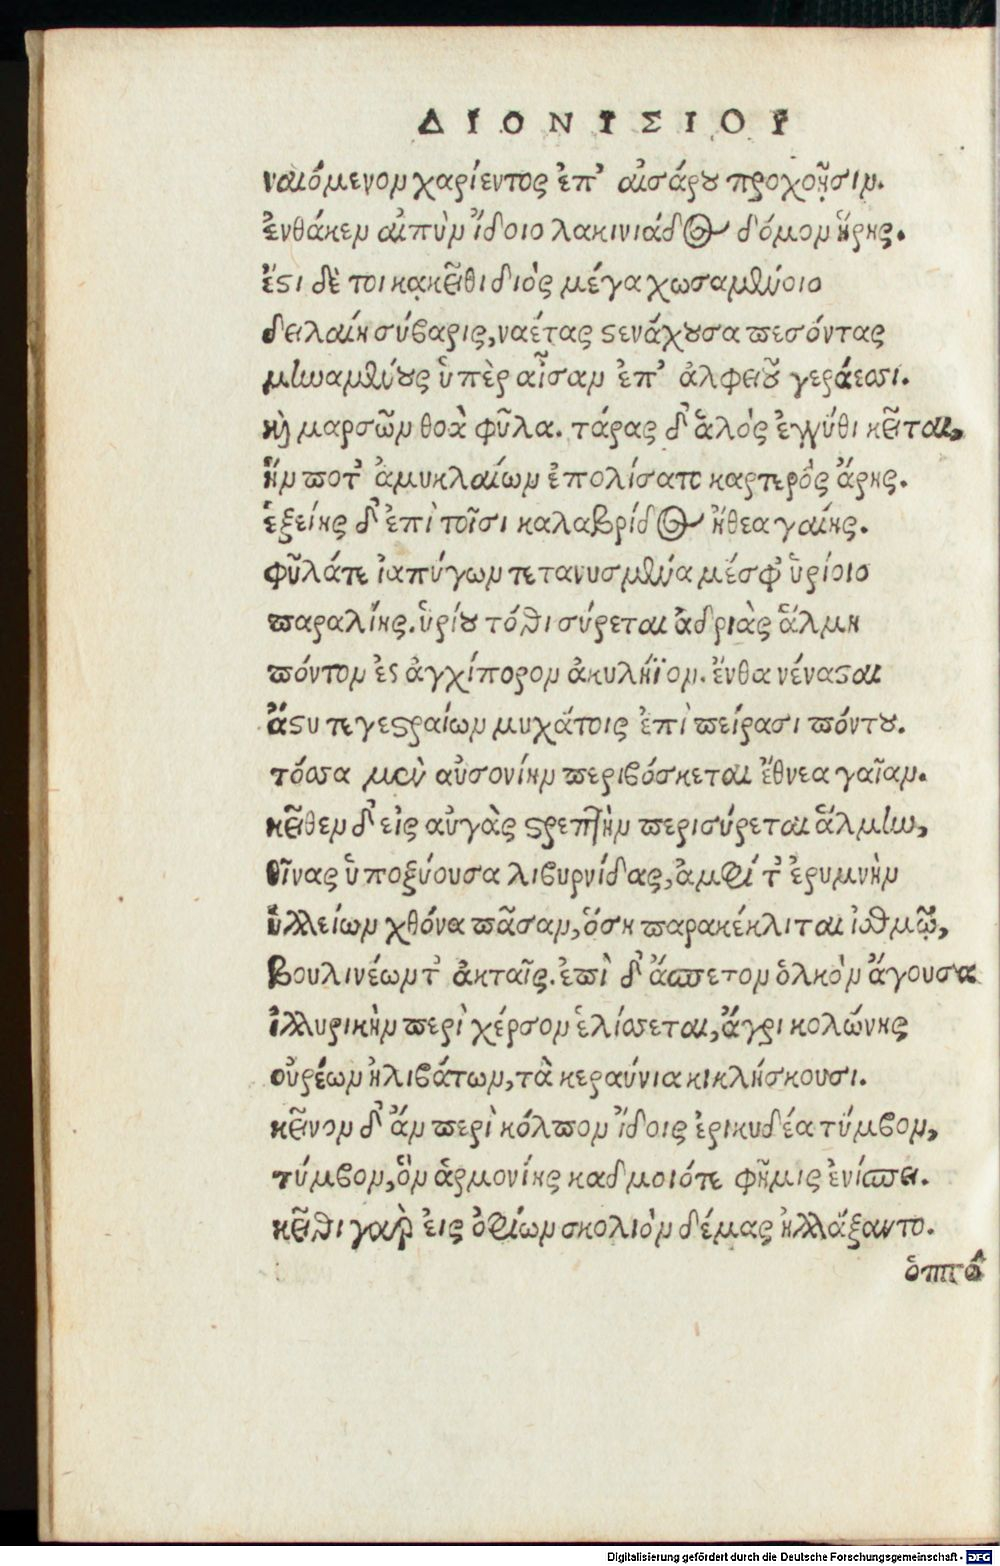 ΔΙΟΝΥΣΙΟΥ
ναιόμενον χαρίεντος ἐπ' αἰσάρου προχοῇσιν.
ἔνθάκεν αἰπὺν ἴδοιο λακινιάδος δόμον ἥρης.
ἔστι δέ τοι κᾀκεῖθι διὸς μέγα χωσαμένοιο
δειλαίη σύβαρις, ναέτας στενάχουσα πεσόντας
μηναμένους ὑπὲρ αἶσαν ἐπ' ἀλφειοῦ γεράεσσι.
καὶ μαρσῶν θοὰ φῦλα. τάρας δ' ἁλὸς ἐγγύθι κεῖται,
ἥν ποτ' ἀμυκλαίων ἐπολίσατο καρτερὸς ἄρης.
ἑξείης δ' ἐπὶ τοῖσι καλαβρίδος ἤθεα γαίης.
φῦλά τε ἰαπύγων τετανυσμένα μέσφ' ὑρίοιο
παραλίης. ὑρίου τόθι σύρεται ἀδριὰς ἅλμη
πόντον ἐς ἀγχίπορον ἀκυλήϊον. ἔνθα νένασται
ἄστυ τεγεστραίων μυχάτοις ἐπὶ πείρασι πόντου.
τόσσα μὲν αὐσονίην περιβόσκεται ἔθνεα γαῖαν.
κεῖθεν δ' εἰς αὐγὰς στρεπτὴν περισύρεται ἅλμην,
θῖνας ὑποξύουσα λιβυρνίδας, ἀμφί τ' ἐρυμνὴν
ὑλλείων χθόνα πᾶσαν, ὅση παρακέκλιται ἰσθμῷ,
βουλινέων τ' ἀκταῖς. ἐπὶ δ' ἄσπετον ὁλκὸν ἄγουσα
ἰλλυρικὴν περὶ χέρσον ἑλίσσεται, ἄχρι κολώνης
οὐρέων ἠλιβάτων, τὰ κεραύνια κικλήσκουσι.
κεῖνον δ' ἂν περὶ κόλπον ἴδοις ἐρικυδέα τύμβον,
τύμβον, ὃν ἁρμονίης καδμοιό τε φῆμις ἐνίσπει.
κεῖθι γὰρ εἰς ὀφίων σκολιὸν δέμας ἠλλάξαντο.
ὁππό
Digitalisierung gefördert durch die Deutsche Forschungsgemeinschaft - DFG